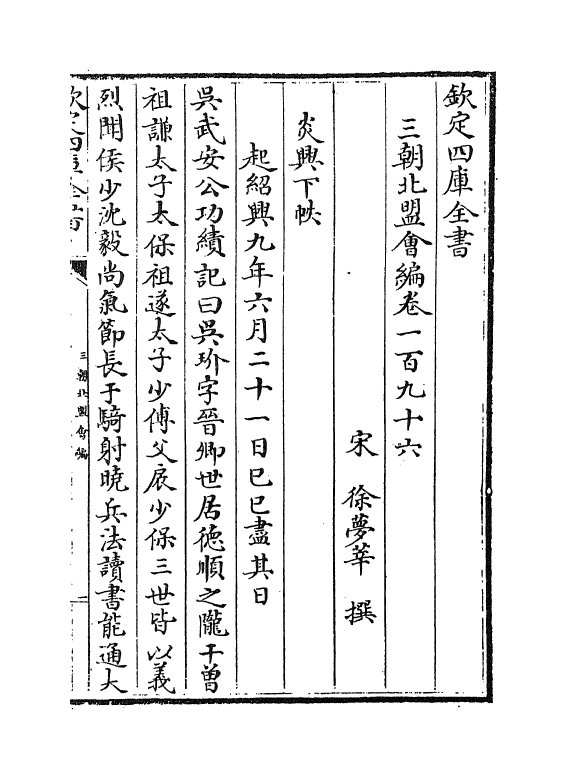 欽定四庫全書
三朝北盟會編卷一百九十六
宋 徐夢莘 撰
炎興下帙
起紹興九年六月二十一日己巳盡其日
吳武安公功績記曰吳玠字晉卿世居德順之隴干曾
祖謙太子太保祖遂太子少傅父扆少保三世皆以義
烈聞侯少沈毅尚氣節長于騎射曉兵法讀書能通大
三朝北盟會編